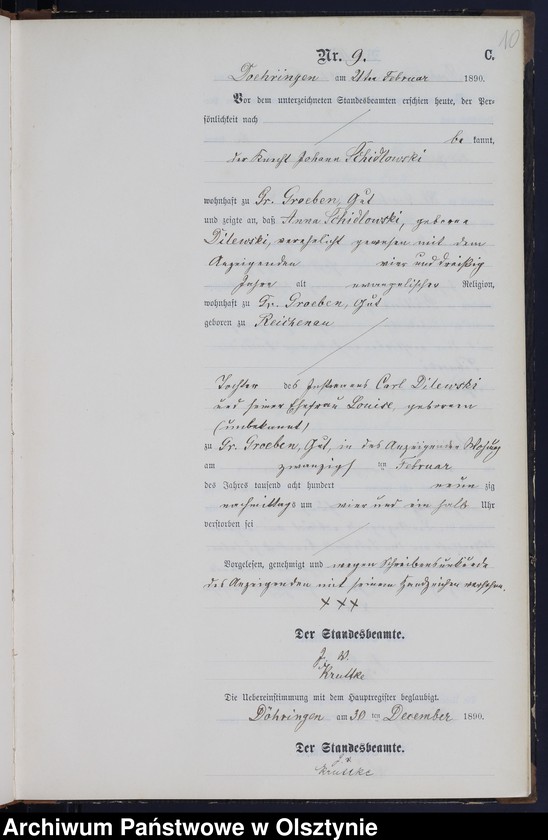 10
Nr. 9. C.
Doehringen am 21ten Februar 1890.
Vor dem unterzeichneten Standesbeamten erschien heute, der Per-
sönlichkeit nach
be kannt,
der Knecht Johann Schidlowski
wohnhaft zu Gr. Groeben, Gut
und zeigte an, daß Anna Schidlowski, geborne
Dilewski, verehelicht gewesen mit dem
Anzeigenden vier und dreißig
Jahre alt evangelischer Religion,
wohnhaft zu Gr. Groeben, Gut
geboren zu Reichenau
Tochter des Instmanns Carl Dilewski
und seiner Ehefrau Louise, geborenen
(unbekannt)
zu Gr. Groeben, Gut, in des Anzeigenden Wohung
am zwanzigst ten Februar
des Jahres tausend acht hundert neun zig
nachmittags um vier und ein halb Uhr
verstorben sei
Vorgelesen, genehmigt und wegen Schreibensunkunde
des Anzeigenden mit seinem Handzeichen versehen.
+++
Der Standesbeamte.
J. V.
Kruttke
Die Uebereinstimmung mit dem Hauptregister beglaubigt.
Döhringen am 30 ten December 1890.
Der Standesbeamte.
J. V.
Kruttke
Archiwum Państwowe w Olsztynie